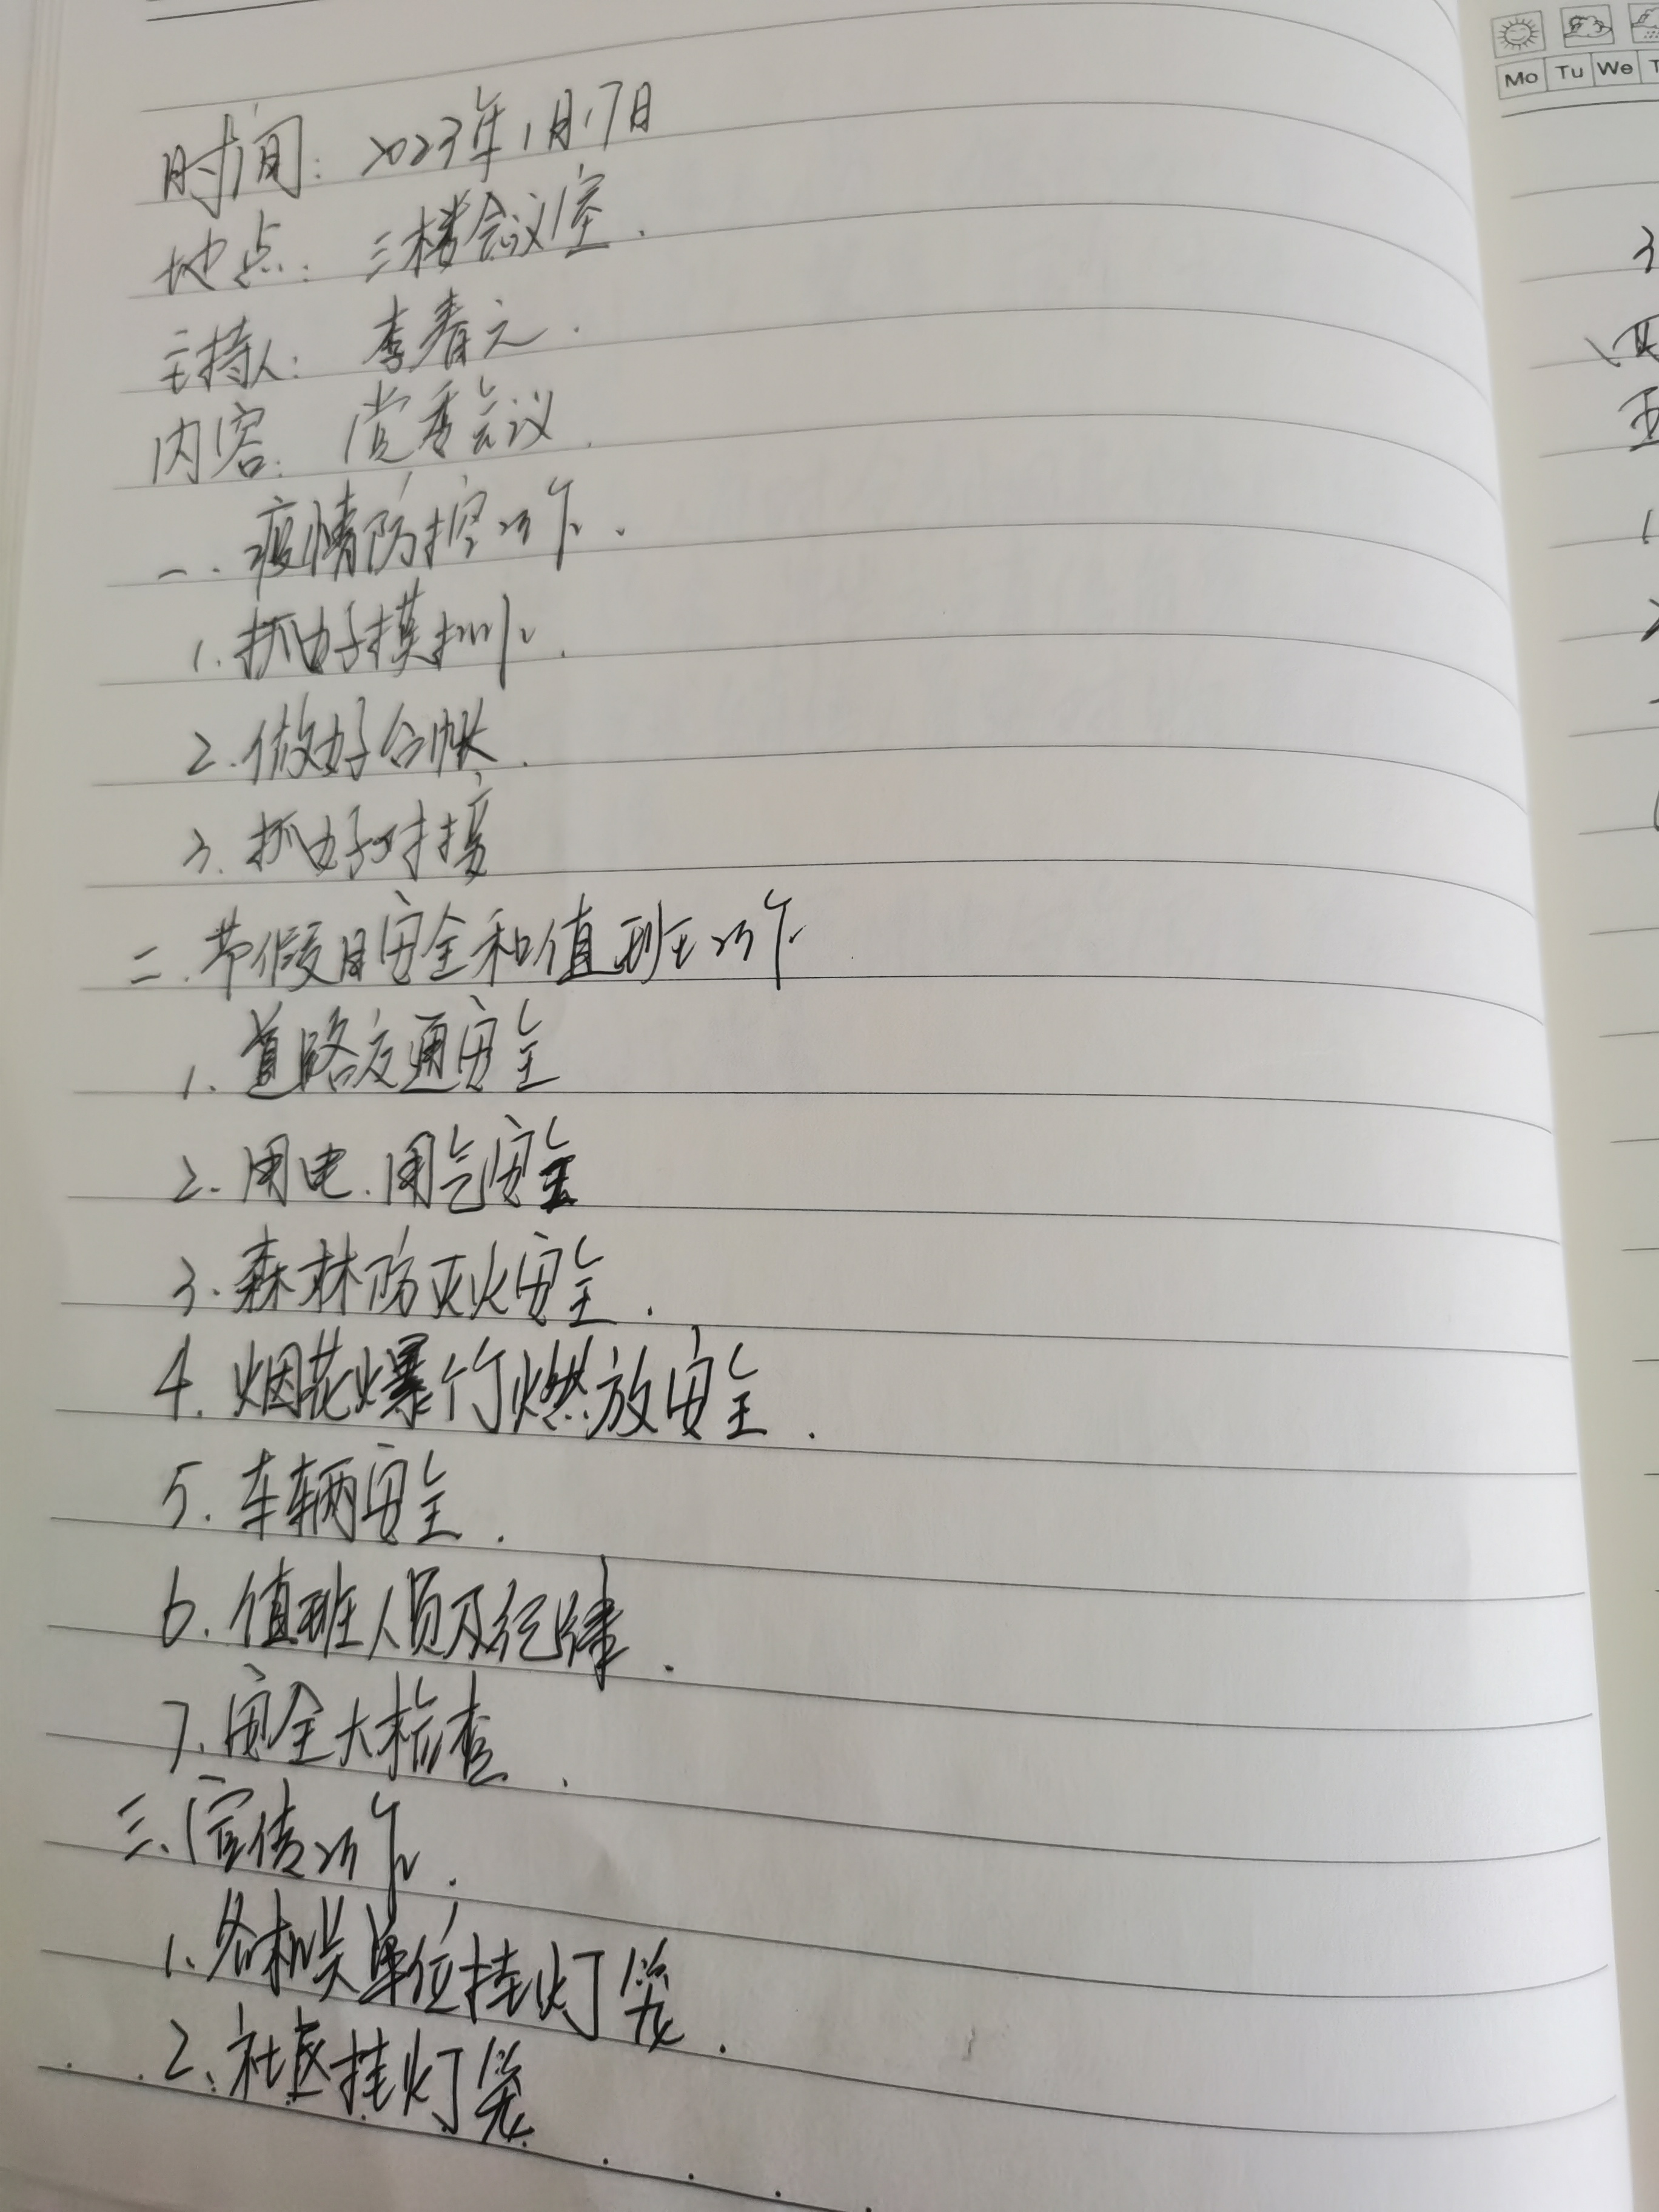 时间：2023年1月17日
地点：三楼会议室.
主持人：李春元.
内容：党委会议.
一.疫情防控工作.
1.抓好摸排工作.
2.做好台帐.
3.抓好对接
二.节假日安全和值班工作
1.道路交通安全
2.用电.用气安全
3.森林防灭火安全.
4.烟花爆竹燃放安全.
5.车辆安全.
6.值班人员及纪律.
7.安全大检查.
三、宣传工作.
1、各机关单位挂灯笼.
2、社区挂灯笼
Mo Tu We